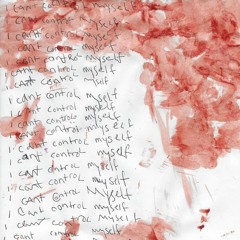 I cant control myself
I cant control myself
I cant control myself
I cant control myself
I cant control myself
cant control myself
I cant control myself
I cant control myself
I cant control myself
I cant control myself
cant control myself
I cant control myself
cant control myself
cant control myself
I cant control myself
I cant control myself
cant control myself
cant control myself